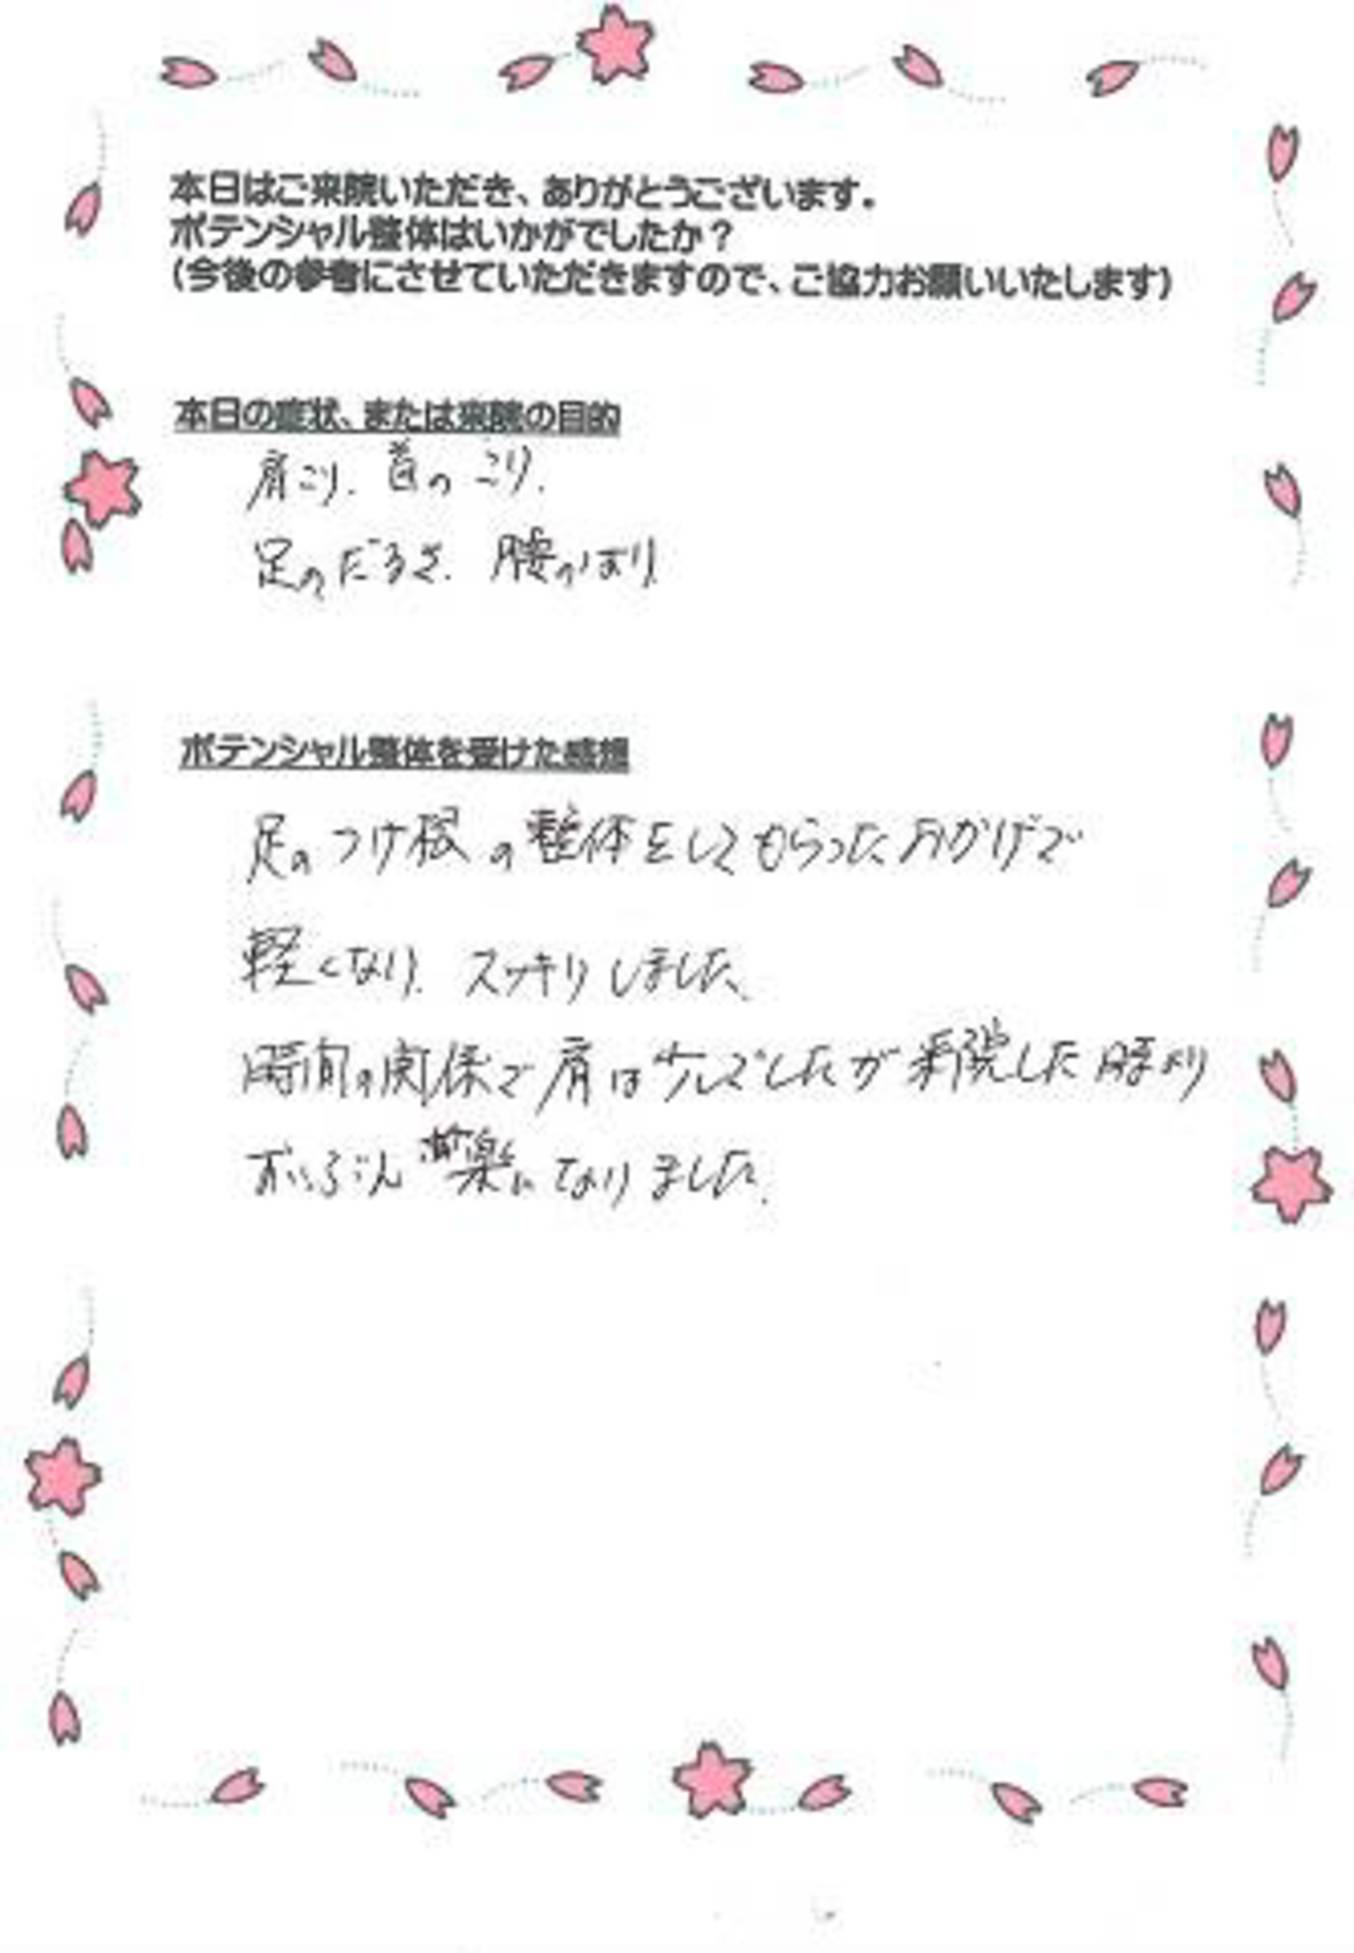 本日はご来院いただき、ありがとうございます。
ポテンシャル整体はいかがでしたか？
(今後の参考にさせていただきますので、ご協力お願いいたします)
本日の症状、または来院の目的
肩こり、首のこり、
足のだるさ、腰のはり
ポテンシャル整体を受けた感想
足のつけ根の整体をしてもらったおかげで
軽くなり、スッキリしました。
時間の関係で肩は少しでしたが来院した時より
ずいぶん楽になりました。